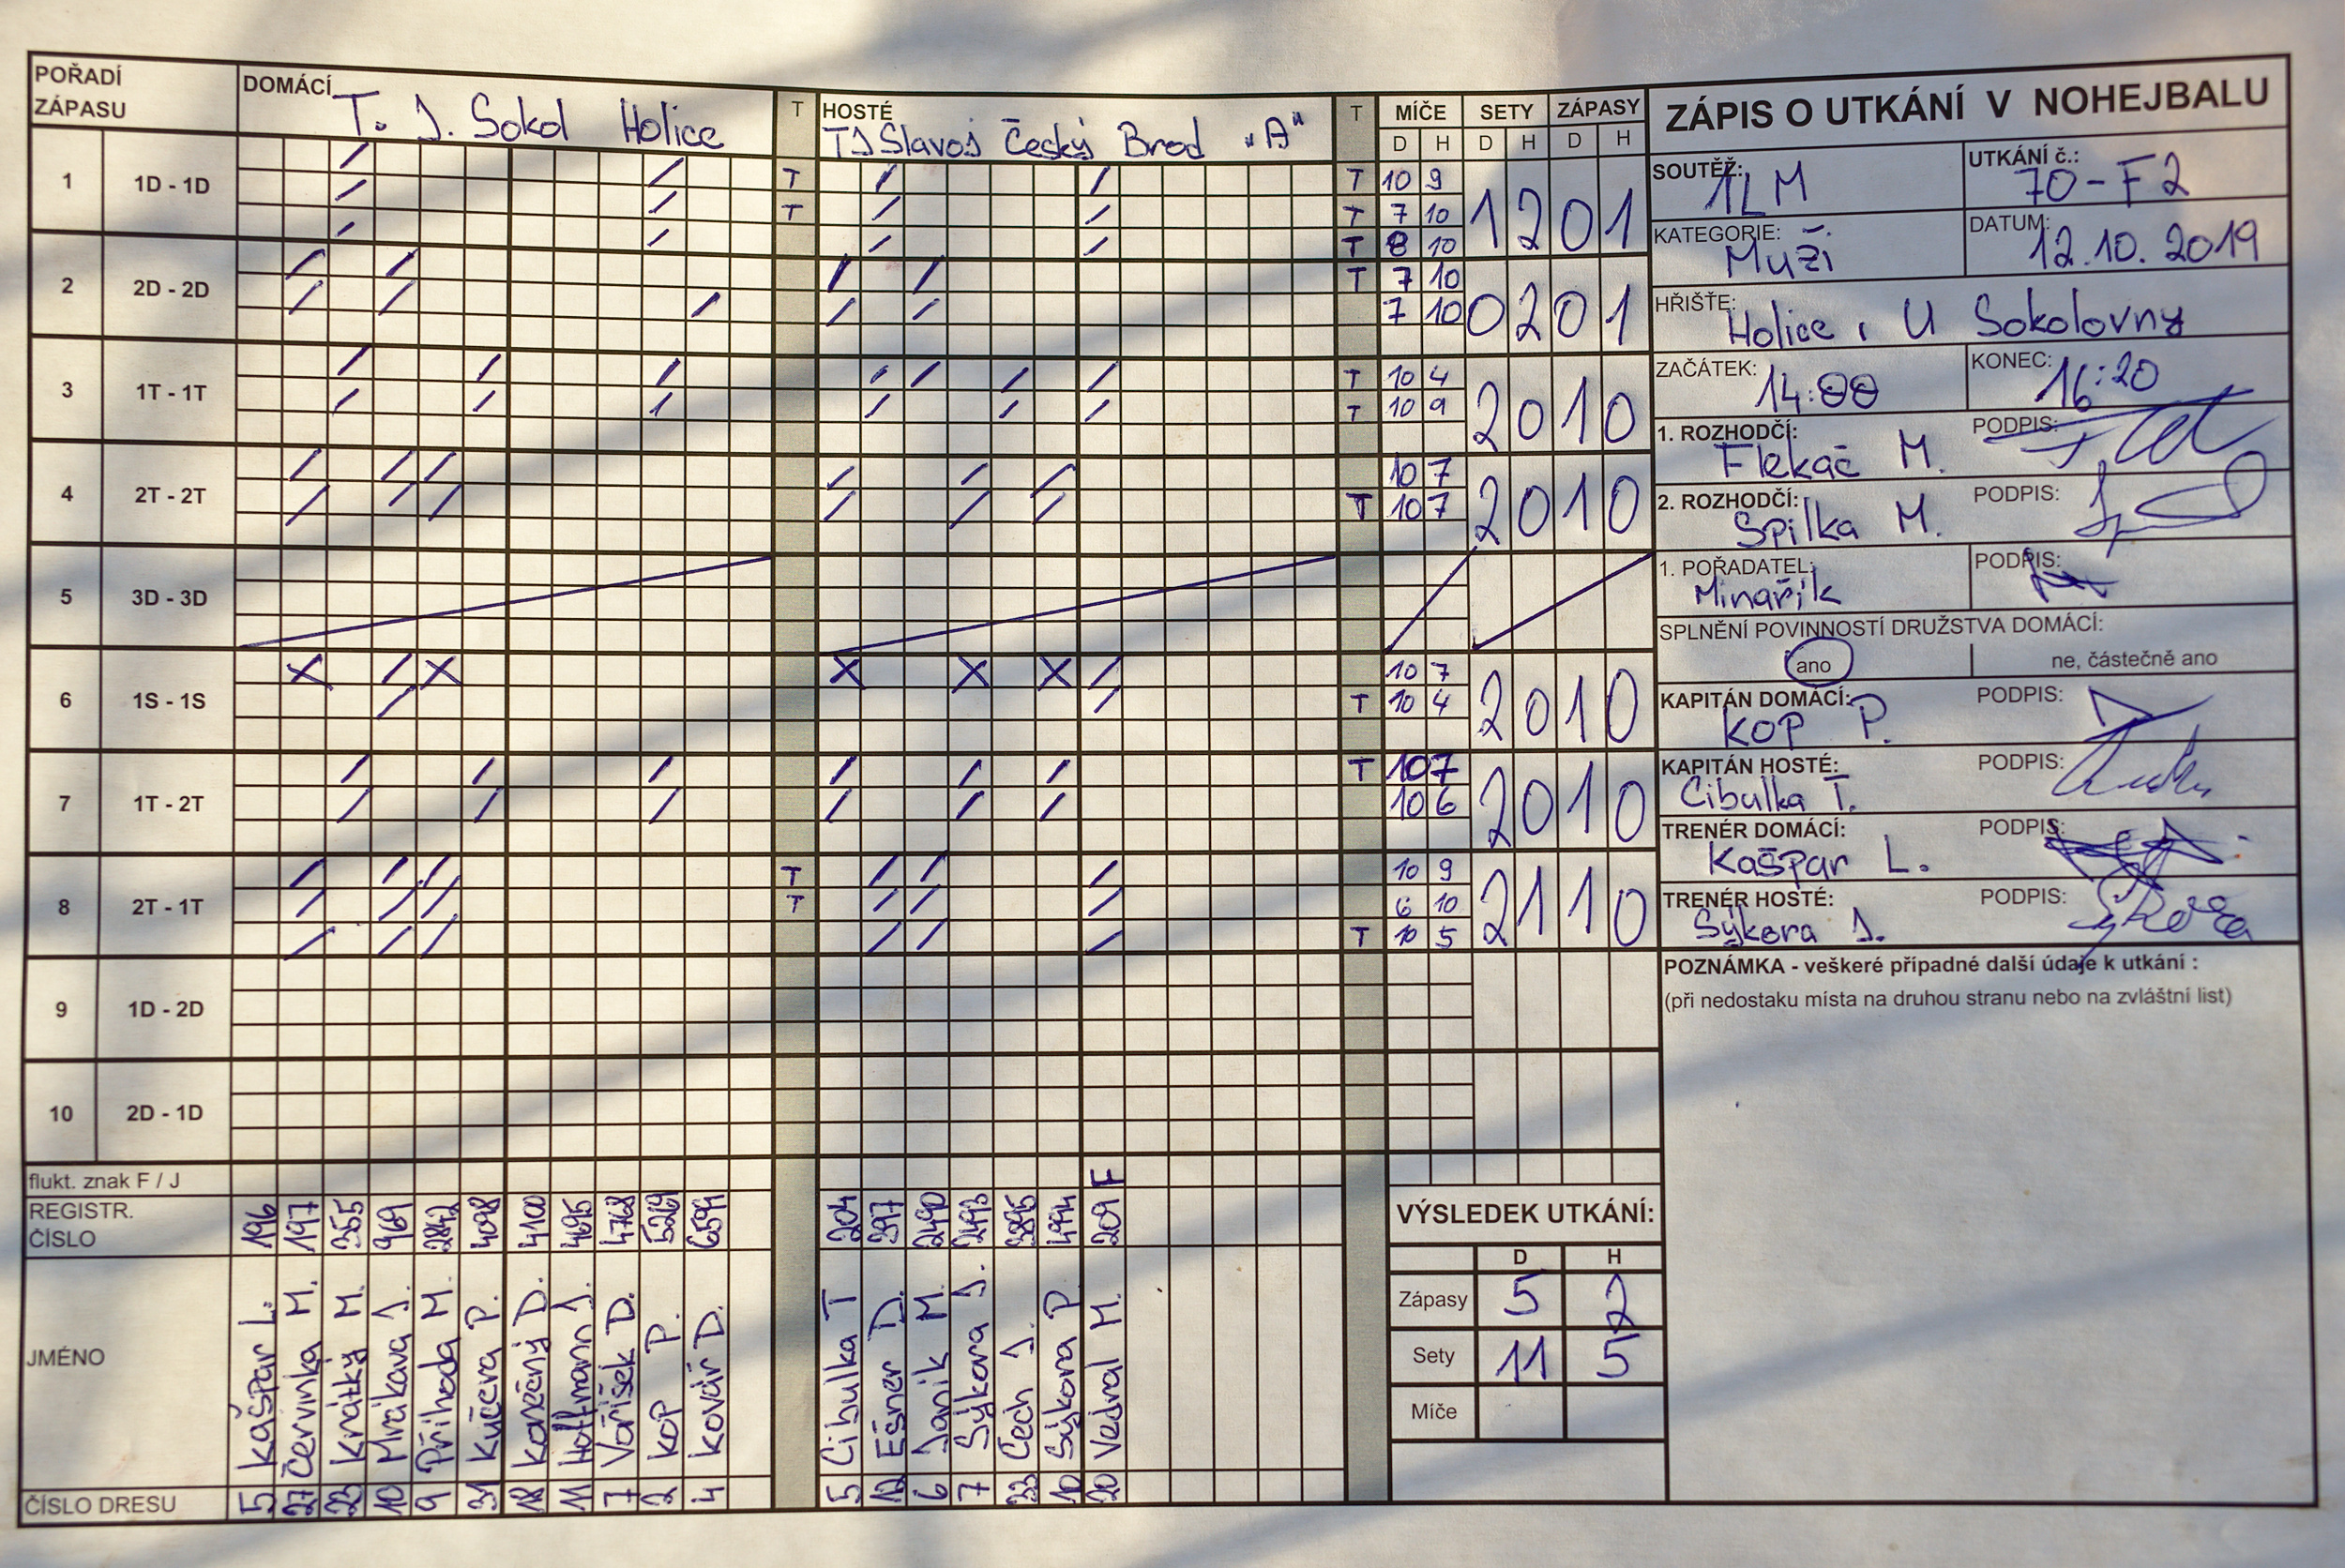 POŘADÍ ZÁPASU
DOMÁCÍ T. J. Sokol Holice
T
HOSTÉ TJ Slavoj Český Brod "A"
T
MÍČE SETY ZÁPASY
D H D H D H
1 1D - 1D T T 10 9
T T 7 10
T 8 10
1 2 0 1
2 2D - 2D T 7 10
7 10
0 2 0 1
3 1T - 1T T 10 4
T 10 9
2 0 1 0
4 2T - 2T 10 7
T 10 7
2 0 1 0
5 3D - 3D
6 1S - 1S 10 7
T 10 4
2 0 1 0
7 1T - 2T T 10 7
10 6
2 0 1 0
8 2T - 1T T 10 9
T 6 10
T 10 5
2 1 1 0
9 1D - 2D
10 2D - 1D
flukt. znak F / J F
REGISTR. ČÍSLO 196 197 355 969 2842 4098 4100 4695 4768 5269 6594 204 397 2490 2493 2895 4994 209
JMÉNO Kašpar L. Červinka M. Krátký M. Mrákava J. Příhoda M. Kučera P. Konečný D. Hoffmann J. Voříšek D. Kop P. Kovář D. Cibulka T Ešner D. Janik M. Sýkora J. Čech J. Sýkora P Vedral M.
ČÍSLO DRESU 5 27 23 10 9 31 18 11 7 2 4 5 12 6 7 33 10 20
VÝSLEDEK UTKÁNÍ:
D H
Zápasy 5 2
Sety 11 5
Míče
ZÁPIS O UTKÁNÍ V NOHEJBALU
SOUTĚŽ: 1LM
UTKÁNÍ č.: 70-F2
KATEGORIE: Muži
DATUM: 12.10.2019
HŘIŠTĚ: Holice, U Sokolovny
ZAČÁTEK: 14:00
KONEC: 16:20
1. ROZHODČÍ: Flekač M. PODPIS:
2. ROZHODČÍ: Spilka M. PODPIS:
1. POŘADATEL: Minařík PODPIS:
SPLNĚNÍ POVINNOSTÍ DRUŽSTVA DOMÁCÍ:
ano ne, částečně ano
KAPITÁN DOMÁCÍ: KOP P. PODPIS:
KAPITÁN HOSTÉ: Cibulka T. PODPIS:
TRENÉR DOMÁCÍ: Kašpar L. PODPIS:
TRENÉR HOSTÉ: Sýkora J. PODPIS: Sýkora
POZNÁMKA - veškeré případné další údaje k utkání :
(při nedostaku místa na druhou stranu nebo na zvláštní list)